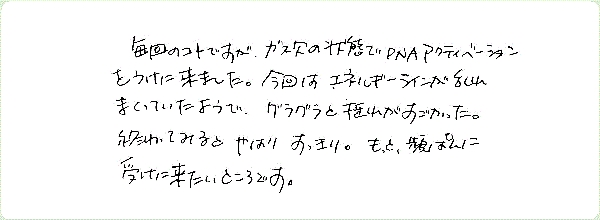 毎回のコトですが、ガス欠の状態でDNAアクティベーション
をうけに来ました。今回は エネルギーラインが乱れ
まくっていたようで、グラグラと揺れがすごかった。
終わってみると やはり すっきり。もっと、頻ぱんに
受けに来たいところです。